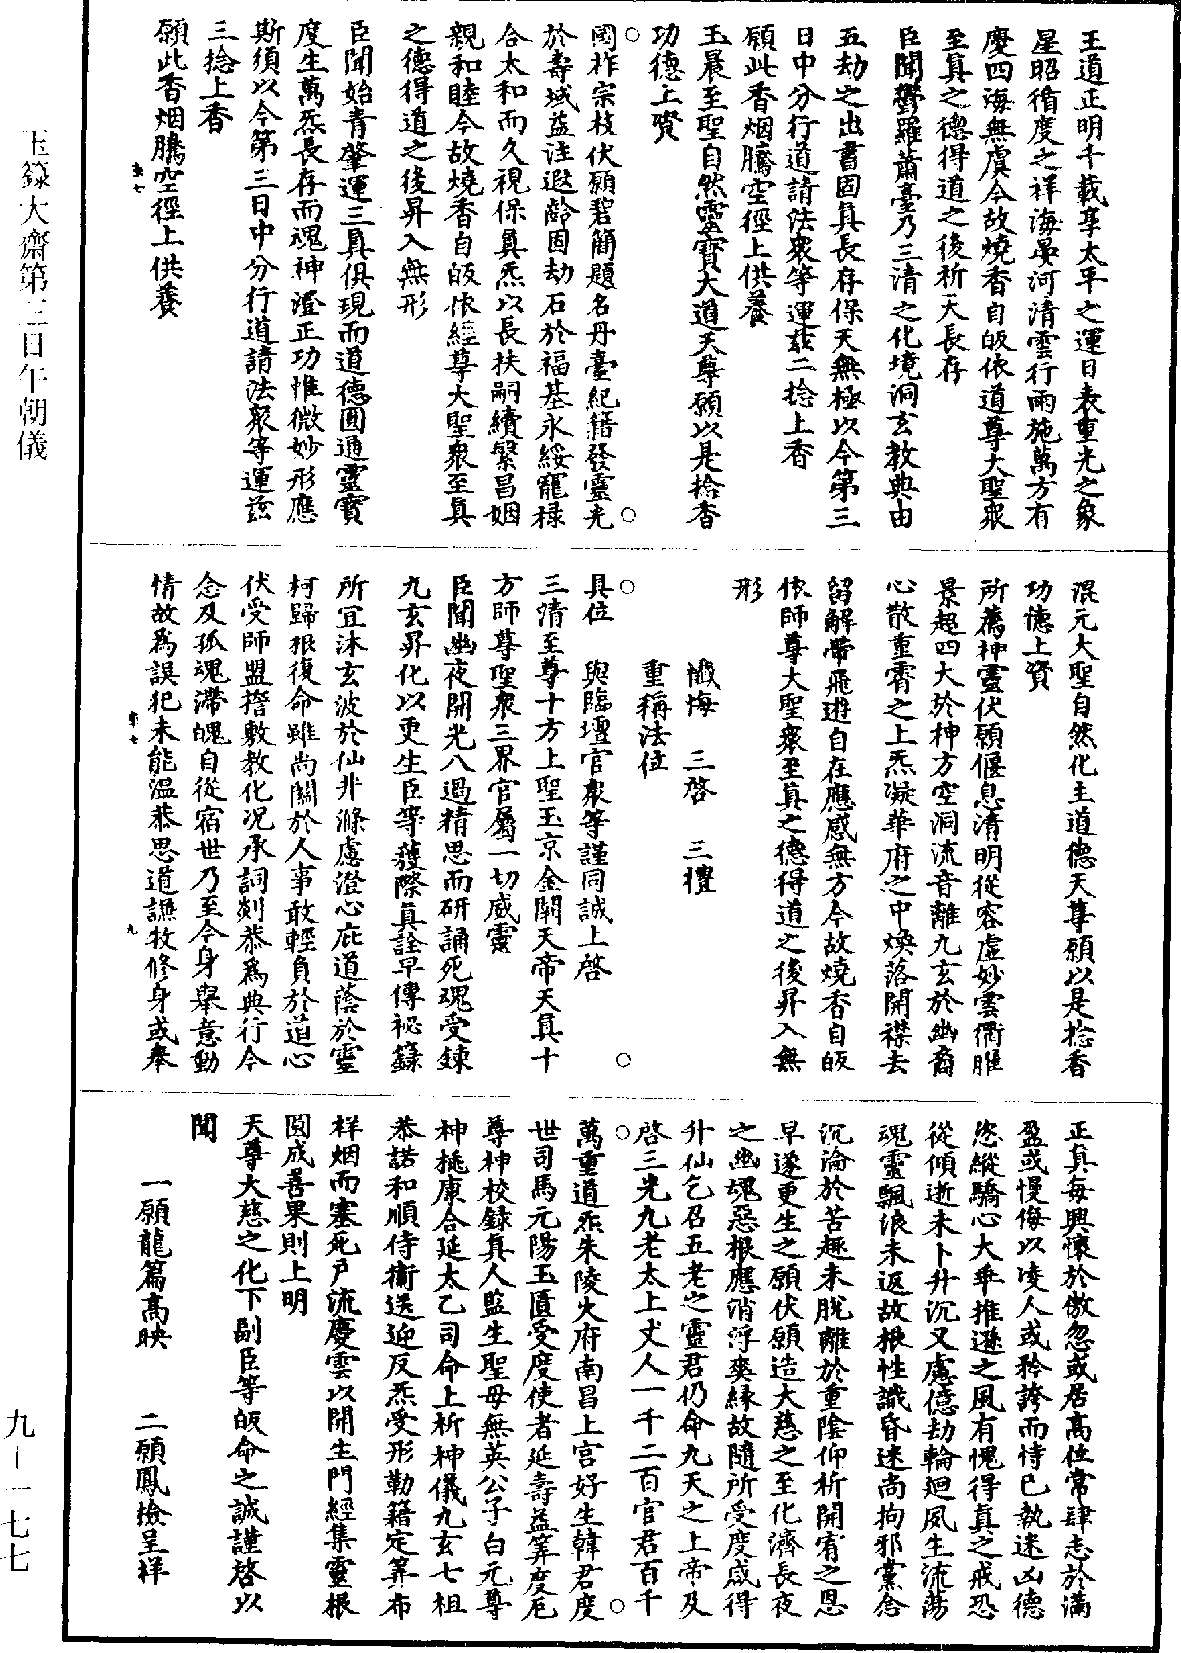 王道正明千載享太平之運日表重光之象
星昭循度之祥海晏河清雲行雨施萬方有
慶四海無虞今故燒香自皈依道尊大聖眾
至真之德得道之後祈天長存
臣聞鬱羅蕭臺乃三清之化境洞玄教典由
五劫之出書固真長存保天無極以今第三
日中分行道請法眾等運茲二捻上香
願此香烟騰空徑上供養
玉晨至聖自然靈寶大道天尊願以是捻香
功德上資
國祚宗枝伏願碧簡題名丹臺紀籍發靈光
於壽域益注遐齡固劫石於福基永綏寵祿
合太和而久視保真炁以長扶嗣續繁昌姻
親和睦今故燒香自皈依經尊大聖眾至真
之德得道之後昇入無形
臣聞始青肇運三真俱現而道德圓通靈寶
度生萬炁長存而魂神澄正功惟微妙形應
斯須以今第三日中分行道請法眾等運茲
三捻上香
願此香烟騰空徑上供養
混元大聖自然化主道德天尊願以是捻香
功德上資
所薦神靈伏願偃息清明從容虛妙雲衢睢
景超四大於神方空洞流音離九玄於幽裔
心散重霄之上炁凝華府之中煥落開襟去
留解帶飛遊自在應感無方今故燒香自皈
依師尊大聖眾至真之德得道之後昇入無
形
懺悔 三啓 三禮
重稱法位
具位 與臨壇官眾等謹同誠上啓
三清至尊十方上聖玉京金闕天帝天真十
方師尊聖眾三界官屬一切威靈
臣聞幽夜開光八過精思而研誦死魂受鍊
九玄昇化以更生臣等獲際真詮早傳祕籙
所宜沐玄波於仙井滌慮澄心庇道蔭於靈
柯歸根復命雖尚關於人事敢輕負於道心
伏受師盟擔敷教化況承詞剡恭為典行今
念及孤魂滯魄自從宿世乃至今身舉意動
情故為誤犯未能溫恭思道謙牧修身或奉
正真每興懷於傲忽或居高位常肆志於滿
盈或慢侮以凌人或矜誇而恃已執迷凶德
恣縱驕心大乖推遜之風有愧得真之戒恐
從傾逝未卜升沉又慮億劫輪迴夙生流蕩
魂靈飄浪未返故根性識昏迷尚拘邪黨念
沉淪於苦趣未脫離於重陰仰祈開宥之恩
早遂更生之願伏願造大慈之至化濟長夜
之幽魂惡根應消浮爽緣故隨所受度咸得
升仙乞召五老之靈君仍命九天之上帝及
啓三光九老太上丈人一千二百官君百千
萬重道炁朱陵火府南昌上宮好生韓君度
世司馬元陽玉匱受度使者延壽益筭度厄
尊神校錄真人監生聖母無英公子白元尊
神桃康合延太乙司命上祈神儀九玄七祖
恭諾和順侍衛送迎反炁受形勒籍定筭布
祥烟而塞死戶流慶雲以開生門經集靈根
圓成善果則上明
天尊大慈之化下副臣等皈命之誠謹啓以
聞
一願龍篇高映 二願鳳檢呈祥
玉籙大齋第三日午朝儀
九—一七七